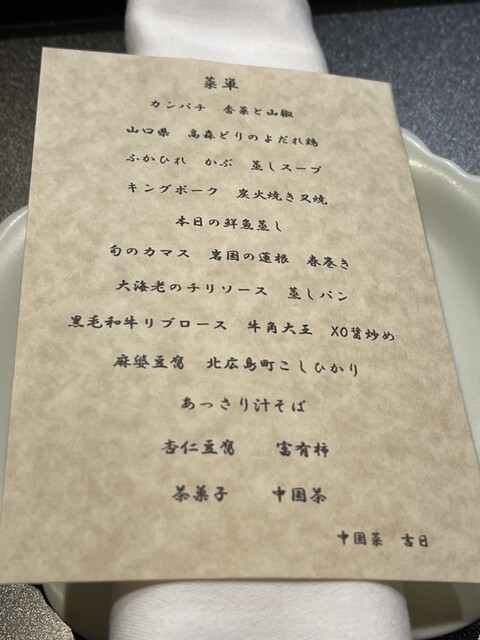 菜単
カンパチ　香菜と山椒
山口県　高森どりのよだれ鶏
ふかひれ　かぶ　蒸しスープ
キングポーク　炭火焼き叉焼
本日の鮮魚蒸し
旬のカマス　岩国の蓮根　春巻き
大海老のチリソース　蒸しパン
黒毛和牛リブロース　牛角大王　XO醤炒め
麻婆豆腐　北広島町こしひかり
あっさり汁そば
杏仁豆腐　富有柿
茶菓子　中国茶
中国菜　古日